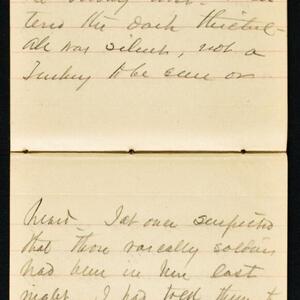 tered the dark thicket.
All was silent, not a
Turkey to be seen or
heard. I at once suspected
that those rascally soldiers
had been in here last
night. I had told them t